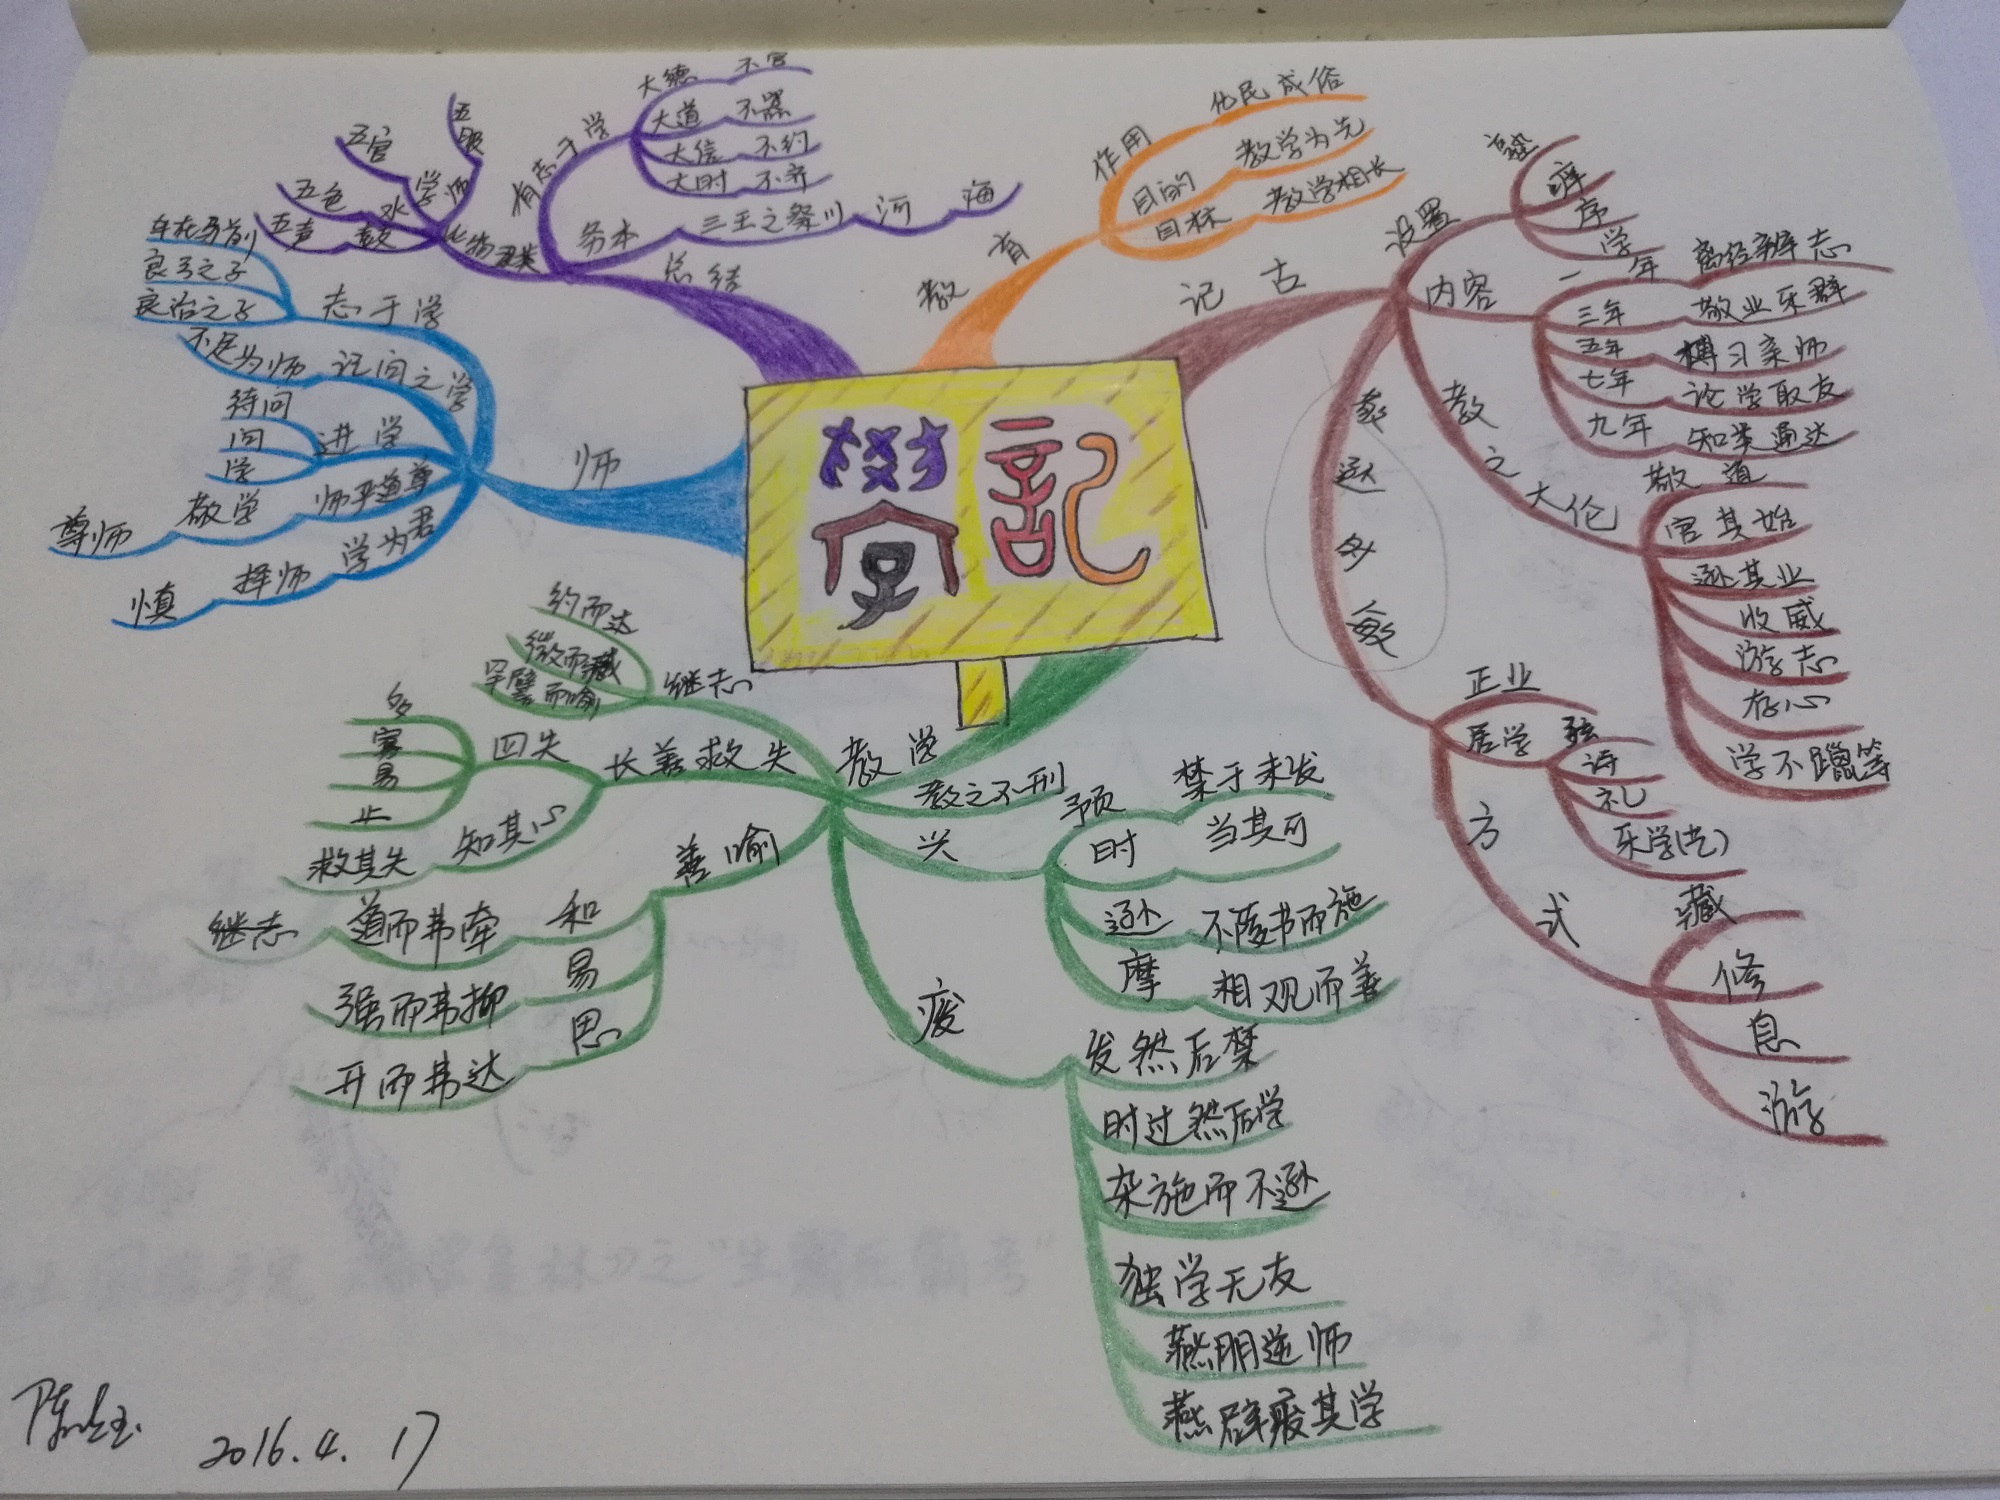 學記
教育
作用
化民成俗
目的
教学为先
目标
教学相长
记古
设置
塾
庠
序
学
内容
一年
离经辨志
三年
敬业乐群
五年
博习亲师
七年
论学取友
九年
知类通达
教之大伦
敬道
官其始
逊其业
收威
游志
存心
学不躐等
正业
居学
弦
诗
礼
乐学(艺)
方式
藏
修
息
游
教学
教之不刑
兴
预
禁于未发
时
当其可
逊
不陵节而施
摩
相观而善
废
发然后禁
时过然后学
杂施而不逊
独学无友
燕朋逆师
燕辟废其学
善喻
和
道而弗牵
继志
易
强而弗抑
思
开而弗达
长善救失
四失
多
寡
易
止
知其心
救其失
继志
约而达
微而臧
罕譬而喻
师
志于学
车在马前
良弓之子
良冶之子
记问之学
不足为师
进学
待问
问
学
师严道尊
敬学
尊师
学为君
择师
慎
总结
有志于学
大德 不官
大道 不器
大信 不约
大时 不齐
务本
三王之祭川
河
海
比物丑类
学师
五服
五官
水
五色
鼓
五声
2016.4.17